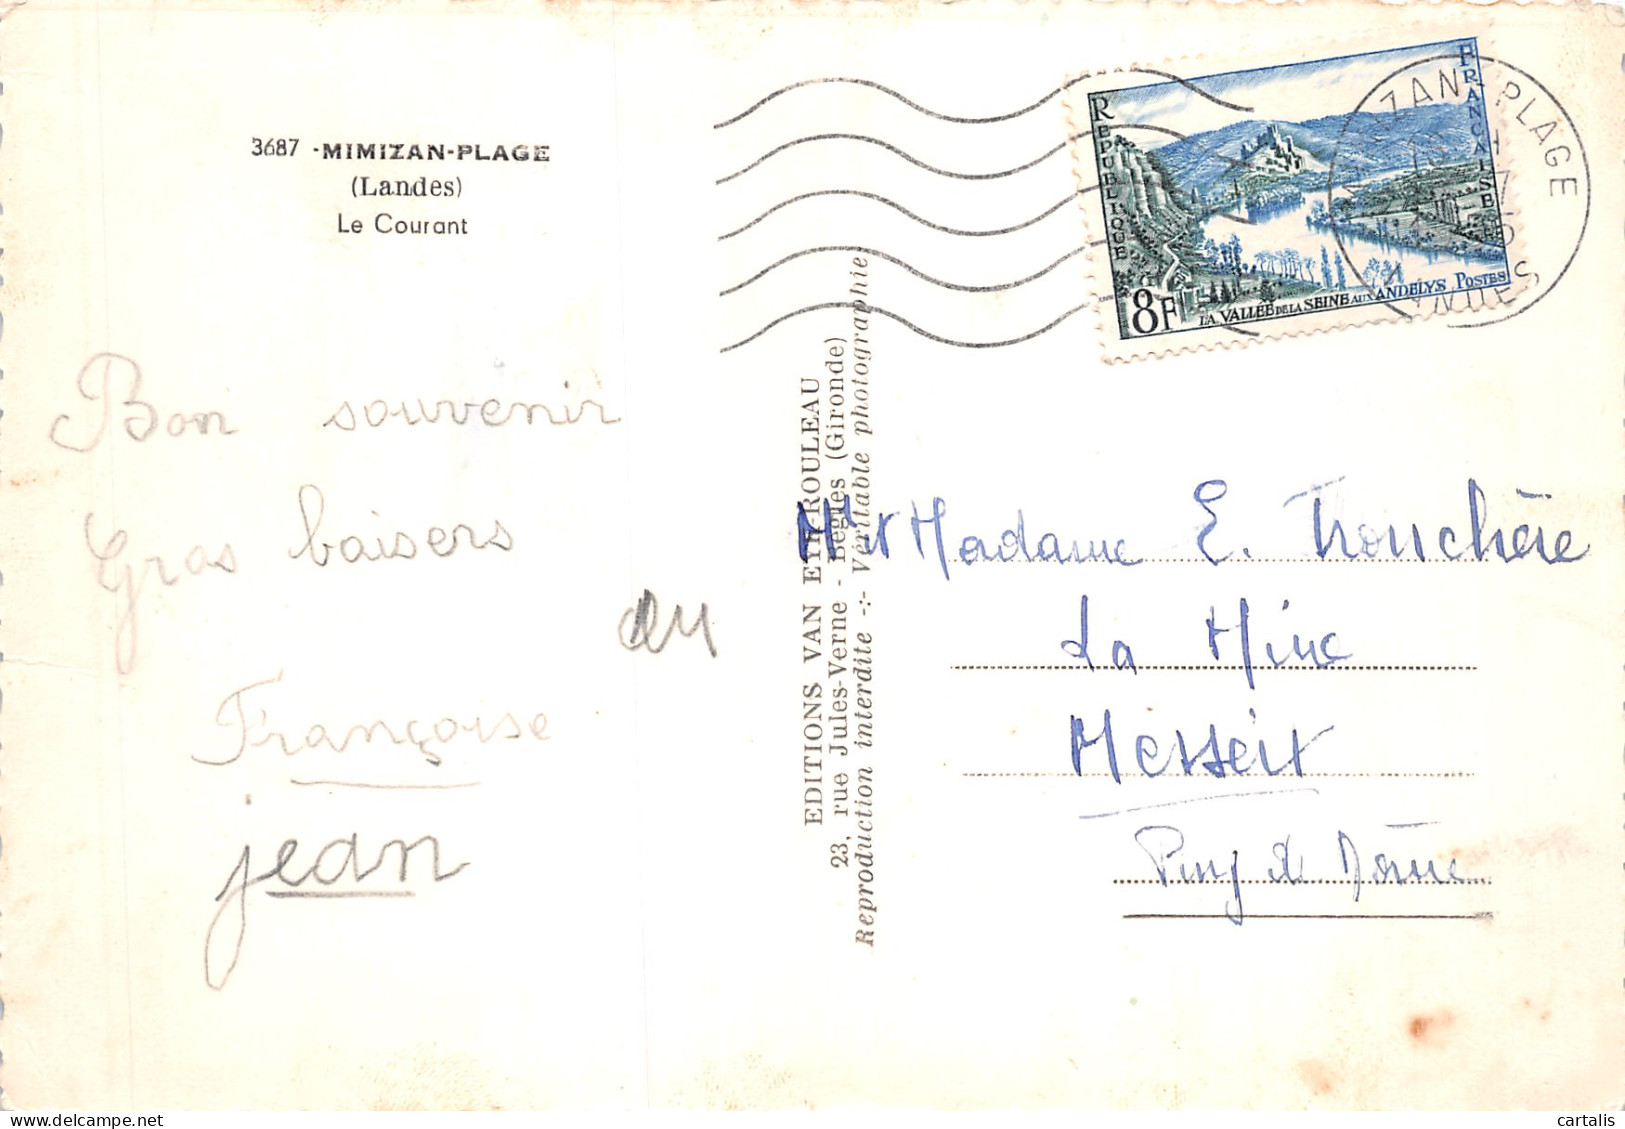 3687 - MIMIZAN-PLAGE
(Landes)
Le Courant
Bon souvenir
Gros baisers
Françoise
jean
EDITIONS VAN EYK-ROULEAU
23, rue Jules-Verne - Bègles (Gironde)
Reproduction interdite -:- Véritable photographie
REPUBLIQUE FRANCAISE
8F
LA VALLEE DE LA SEINE AUX ANDELYS POSTES
PLAGE
LANDES
Mr et Madame E. Tronchère
La Mine
Messeix
Puy de Dôme
cartalis